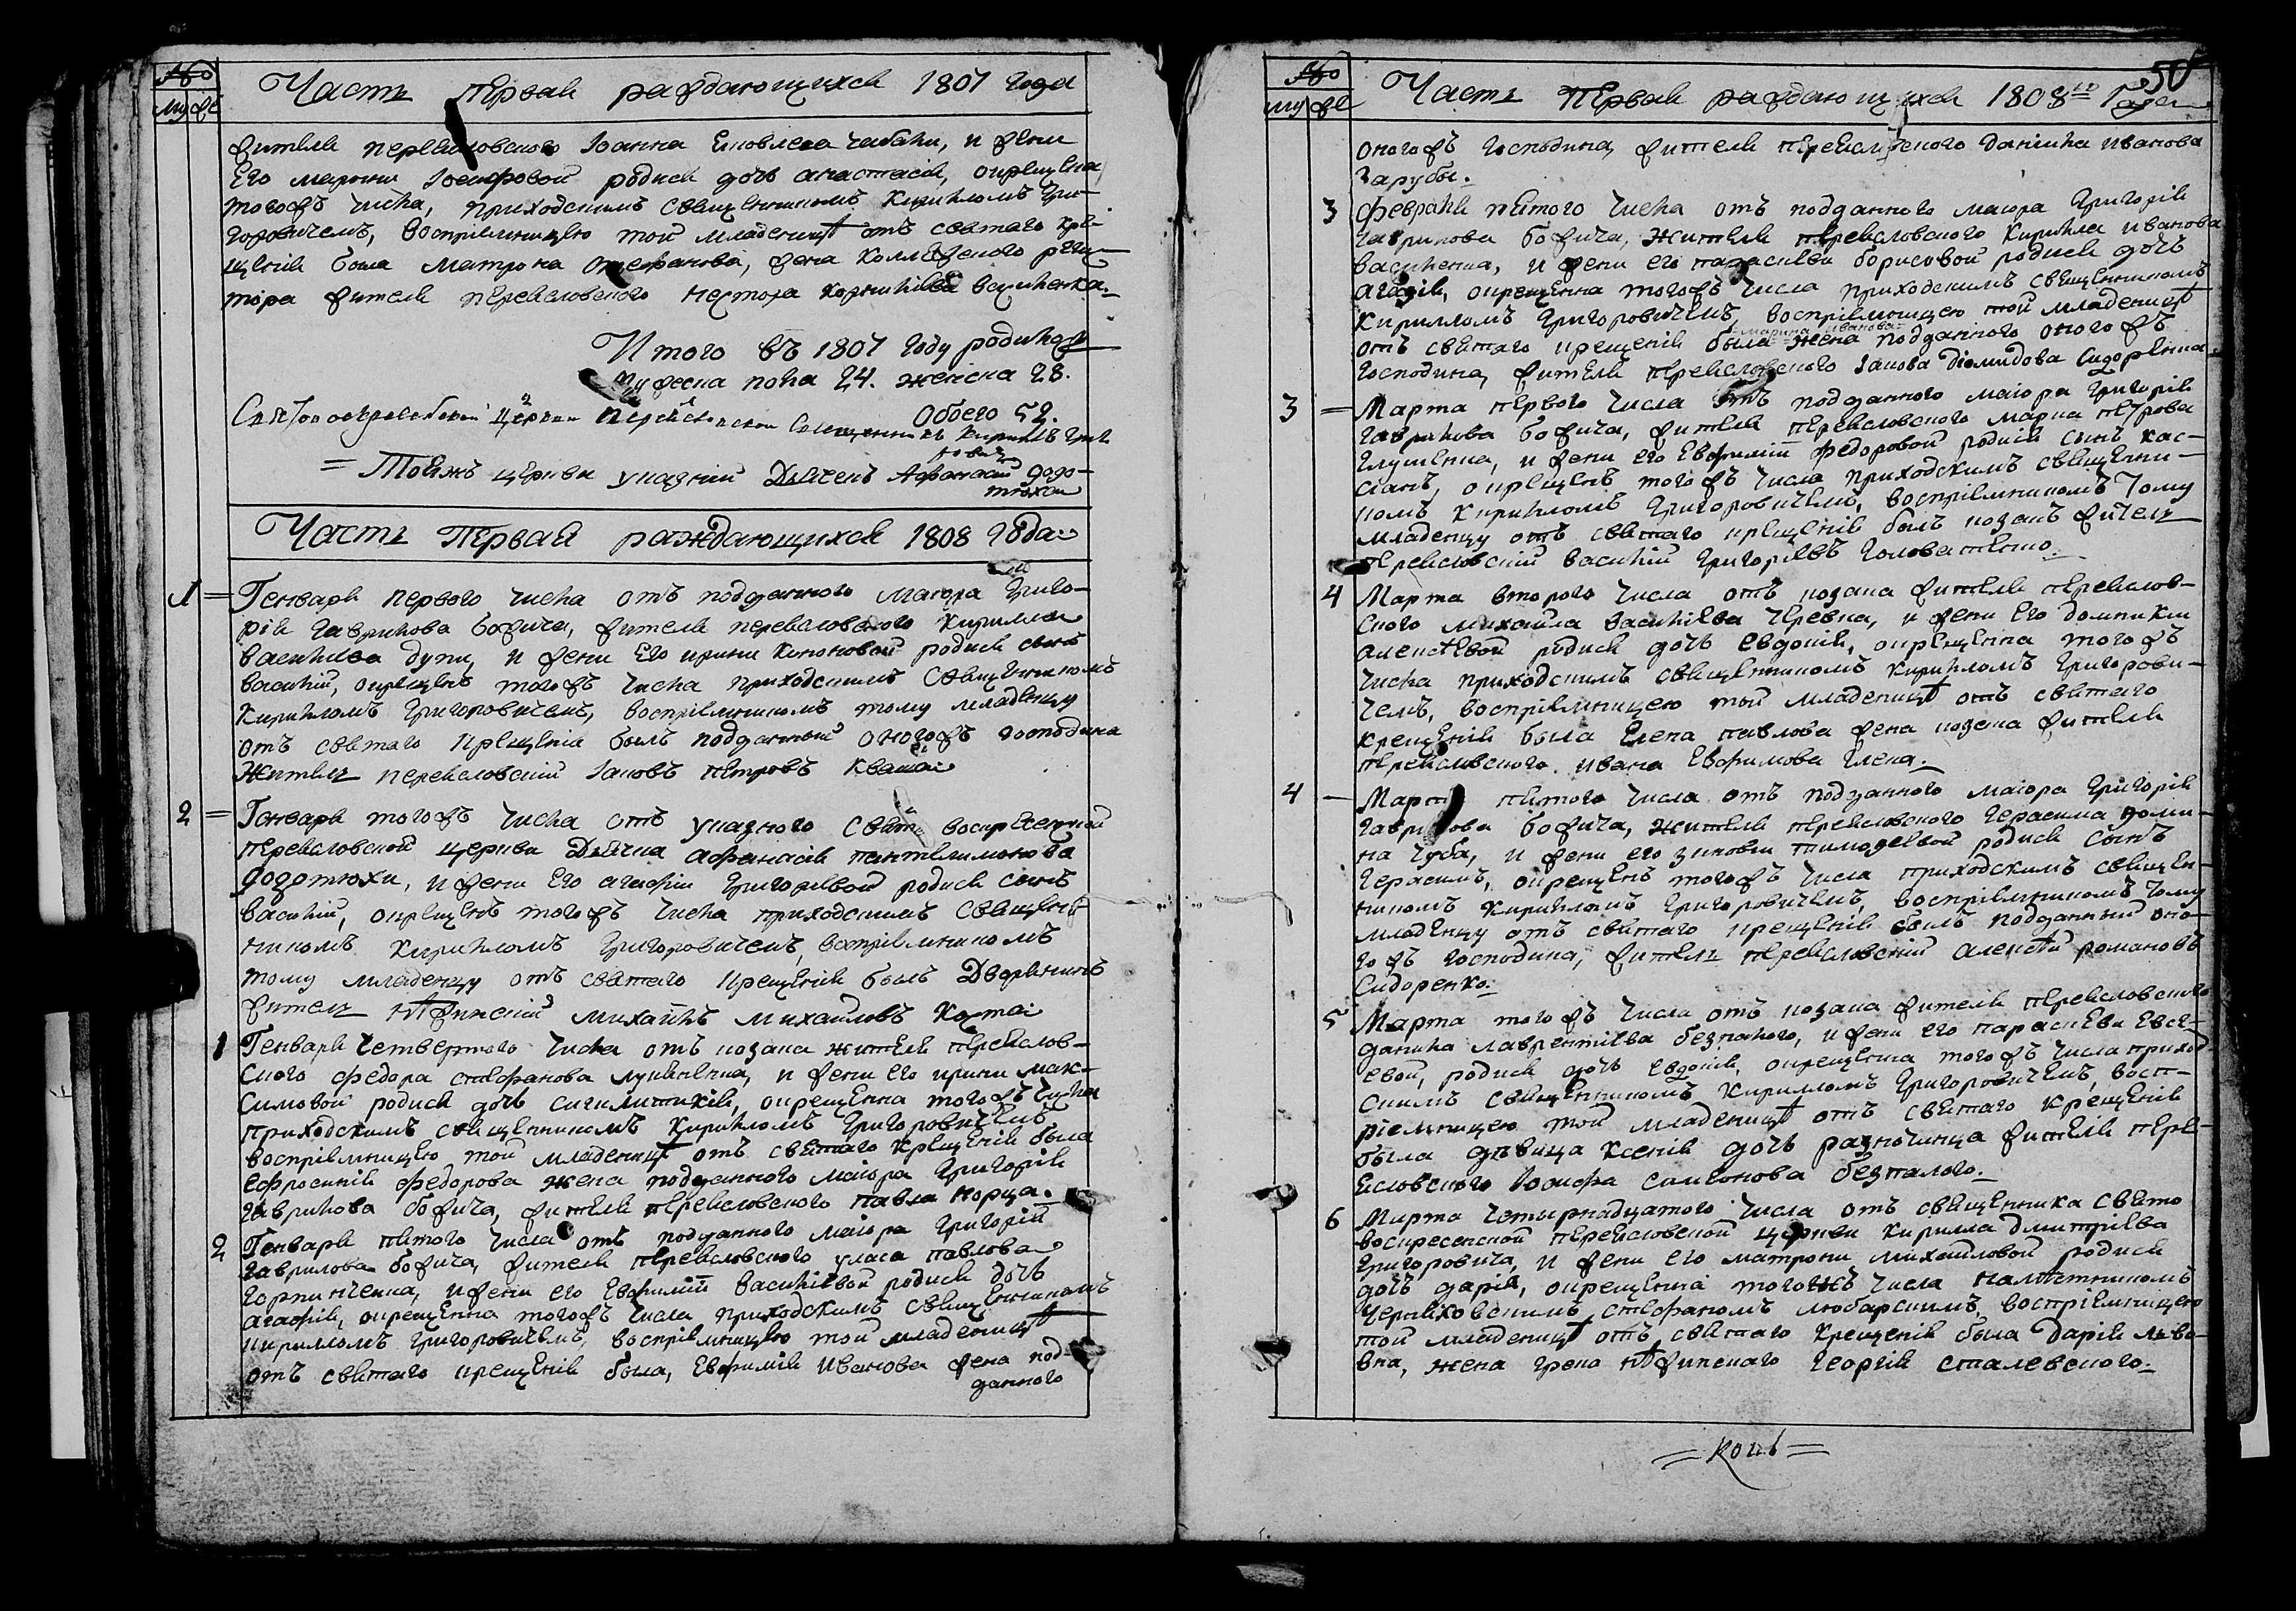 №
му же
Часть первая раждающихся 1807 года
жителя переясловского Іоанна Яковлева чабана, и жени
Его марфини Іосифовой родися дочь анастасія, окрещена
тогожъ числа, приходскимъ священникомъ Кирилломъ Гри-
горовичемъ, воспріемницею той младеницѣ отъ святаго кре-
щенія была Матрона Стефанова, жена Коллежского реги-
тора жителя переясловского Нестора Корниліева василенка.
Итого въ 1807 году родилось
мужеска пола 24. женска 28.
Обоего 52.
Церкви Священникъ Кириллъ Григо
ровичъ
= Тояжъ церкви указній Дьячекъ Афанасій додо-
тюха
Часть Первая раждающихся 1808 Года
1 = Генваря первого числа отъ подданного маіора Григо-
рія Гаврилова божича, жителя переясловского Кирилла
васильева дупи, и жени Его ирини Кононовой родися сынъ
василій, окрещенъ тогожъ числа приходскимъ Священникомъ
Кирилломъ Григоровичемъ, воспріемникомъ тому младенцу
отъ святаго крещенія былъ подданный оногожъ господина
Житель переясловскій Іаковъ петровъ Кваша
2 = Генваря тогожъ числа отъ указного свято воскресенской
переясловской церкви Дьячка афанасія пантелимонова
додотюхи, и жени Его агафіи Григоріевой родися сынъ
василій, окрещенъ тогожъ числа приходскимъ Священ-
никомъ Кирилломъ Григоровичемъ, воспріемникомъ
тому младенцу отъ святаго крещенія былъ Дворянинъ
житель нѣжинскій михаилъ михаиловъ Корта
1 Генваря четвертого числа отъ козака жителя переяслов-
ского федора стефанова лукіенка, и жени его ирини мак-
симовой родися дочь сигклитикія, окрещенна тогожъ числа
приходскимъ священникомъ Кирилломъ Григоровичемъ,
воспріемницею той младеницѣ отъ святаго крещенія была
ефросинія федорова жена подданного маіора Григорія
Гаврилова божича, жителя переясловского павла Корца.
2 Генваря пятого числа отъ подданного маіора Григорія
Гаврилова божича, жителя переясловского уласа павлова
горпинченка, и жени его Евфиміи Василіевой родися дочь
агафія, окрещенна тогожъ числа приходскимъ священникомъ
кирилломъ Григоровичемъ, воспріемницею той младеницѣ
отъ святаго крещенія была, Евфимія Иванова жена под-
данного
№
му же
Часть Первая раждающихся 1808го Года
50
оногожъ господина, жителя переясловского даніила иванова
Зарубы.
3 февраля пятого числа отъ подданного маіора Григорія
гаврилова божича, жителя переясловского Кирилла иванова
василенка, и жени его параскеви борисовой родися дочь
агафія, окрещенна тогожъ числа приходскимъ священникомъ
Кирилломъ Григоровичемъ, воспріемницею той младеницѣ
марина иванова
отъ святаго крещенія была жена подданного оногожъ
господина, жителя переясловского Іакова діомидова сидоренка.
3 = Марта первого числа отъ подданного маіора Григорія
гаврилова божича, жителя переясловского марка петрова
глушенка, и жени его Евфиміи федоровой родися сынъ кас-
сіанъ, окрещенъ тогожъ числа приходскимъ священни-
комъ Кирилломъ Григоровичемъ, воспріемникомъ тому
младенцу отъ святаго крещенія былъ козакъ житель
переясловскій василій Григоріевъ Головатенко.
4 Марта второго числа отъ козака жителя переяслов-
ского михаила василіева черевка, и жени его домникіи
алексѣевой родися дочь евдокія, окрещенна тогожъ
числа приходскимъ священникомъ Кирилломъ Григорови-
чемъ, воспріемницею той младеницѣ отъ святаго
крещенія была Елена павлова жена козака жителя
переясловского ивана Евфимова Глека.
4 — Марта пятого числа отъ подданного маіора Григорія
гаврилова божича, жителя переясловского герасима доми-
на чуба, и жени его зиновіи тимофеевой родися сынъ
герасимъ, окрещенъ тогожъ числа приходскимъ священ-
никомъ Кирилломъ Григоровичемъ, воспріемникомъ тому
младенцу отъ святаго крещенія былъ подданный оно-
гожъ господина, житель переясловскій алексѣй романовъ
сидоренко.
5 Марта тогожъ числа отъ козака жителя переясловского
данила лаврентіева безпалого, и жени его параскеви Евсе-
евой, родися дочь евдокія, окрещенна тогожъ числа приход-
скимъ священникомъ Кирилломъ Григоровичемъ, восп-
ріемницею той младеницѣ отъ святаго крещенія
была дѣвица ксенія дочь разночинца жителя пере-
ясловского Іосифа симеонова безпалого.
6 Марта четырнадцатого числа отъ священника свято
воскресенской переясловской церкви Кирилла дмитріева
Григоровича, и жени его матрони михаиловой родися
дочь дарія, окрещенна тогожъ числа намѣстникомъ
Черняховскимъ стефаномъ любарскимъ, воспріемницею
той младеницѣ отъ святаго крещенія была Дарія льво-
вна, жена грека нѣжинскаго георгія сталевского.